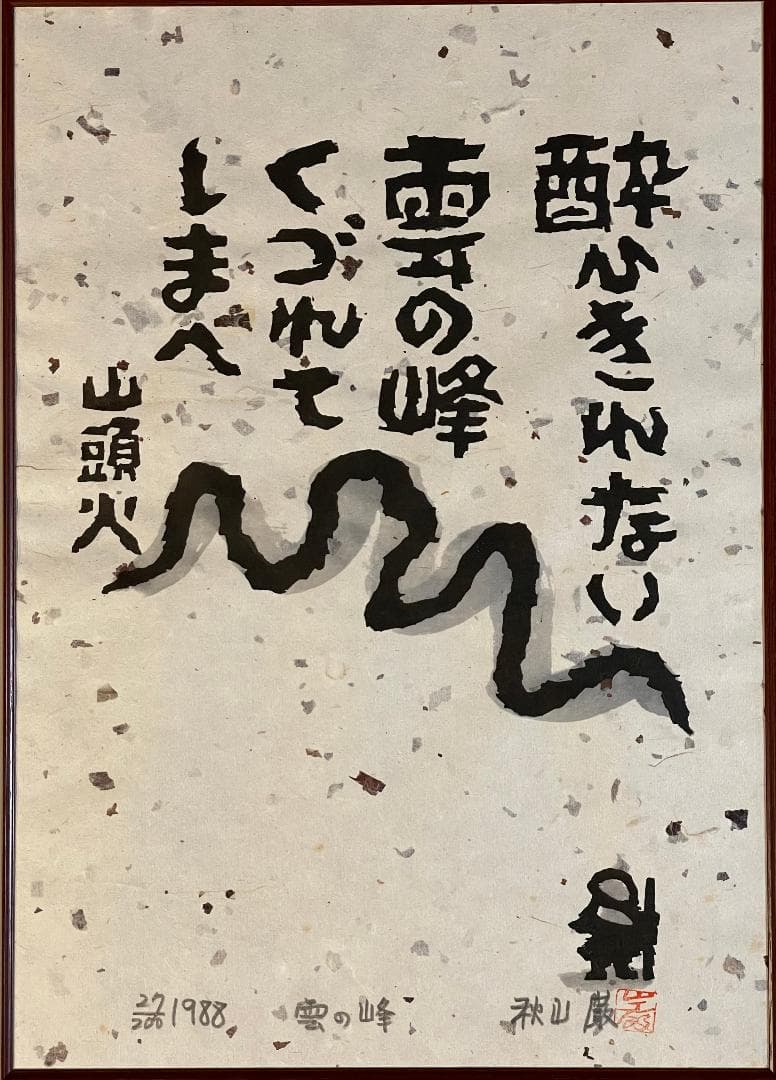 酔ひきれない
雲の峰
くづれて
しまへ
山頭火
27/200 1988 雲の峰 秋山 巌